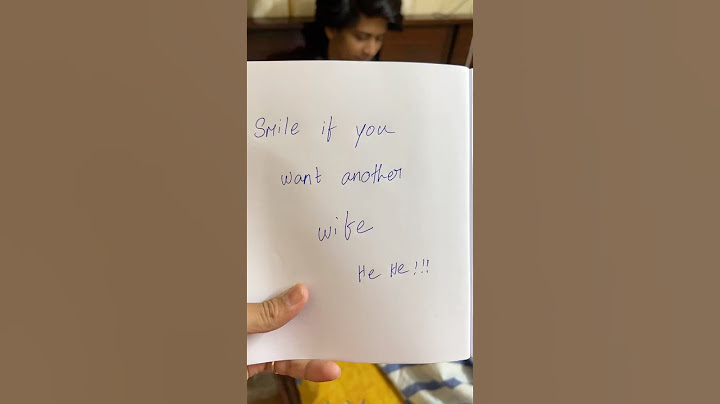 Smile if you
want another
wife
He He!!!